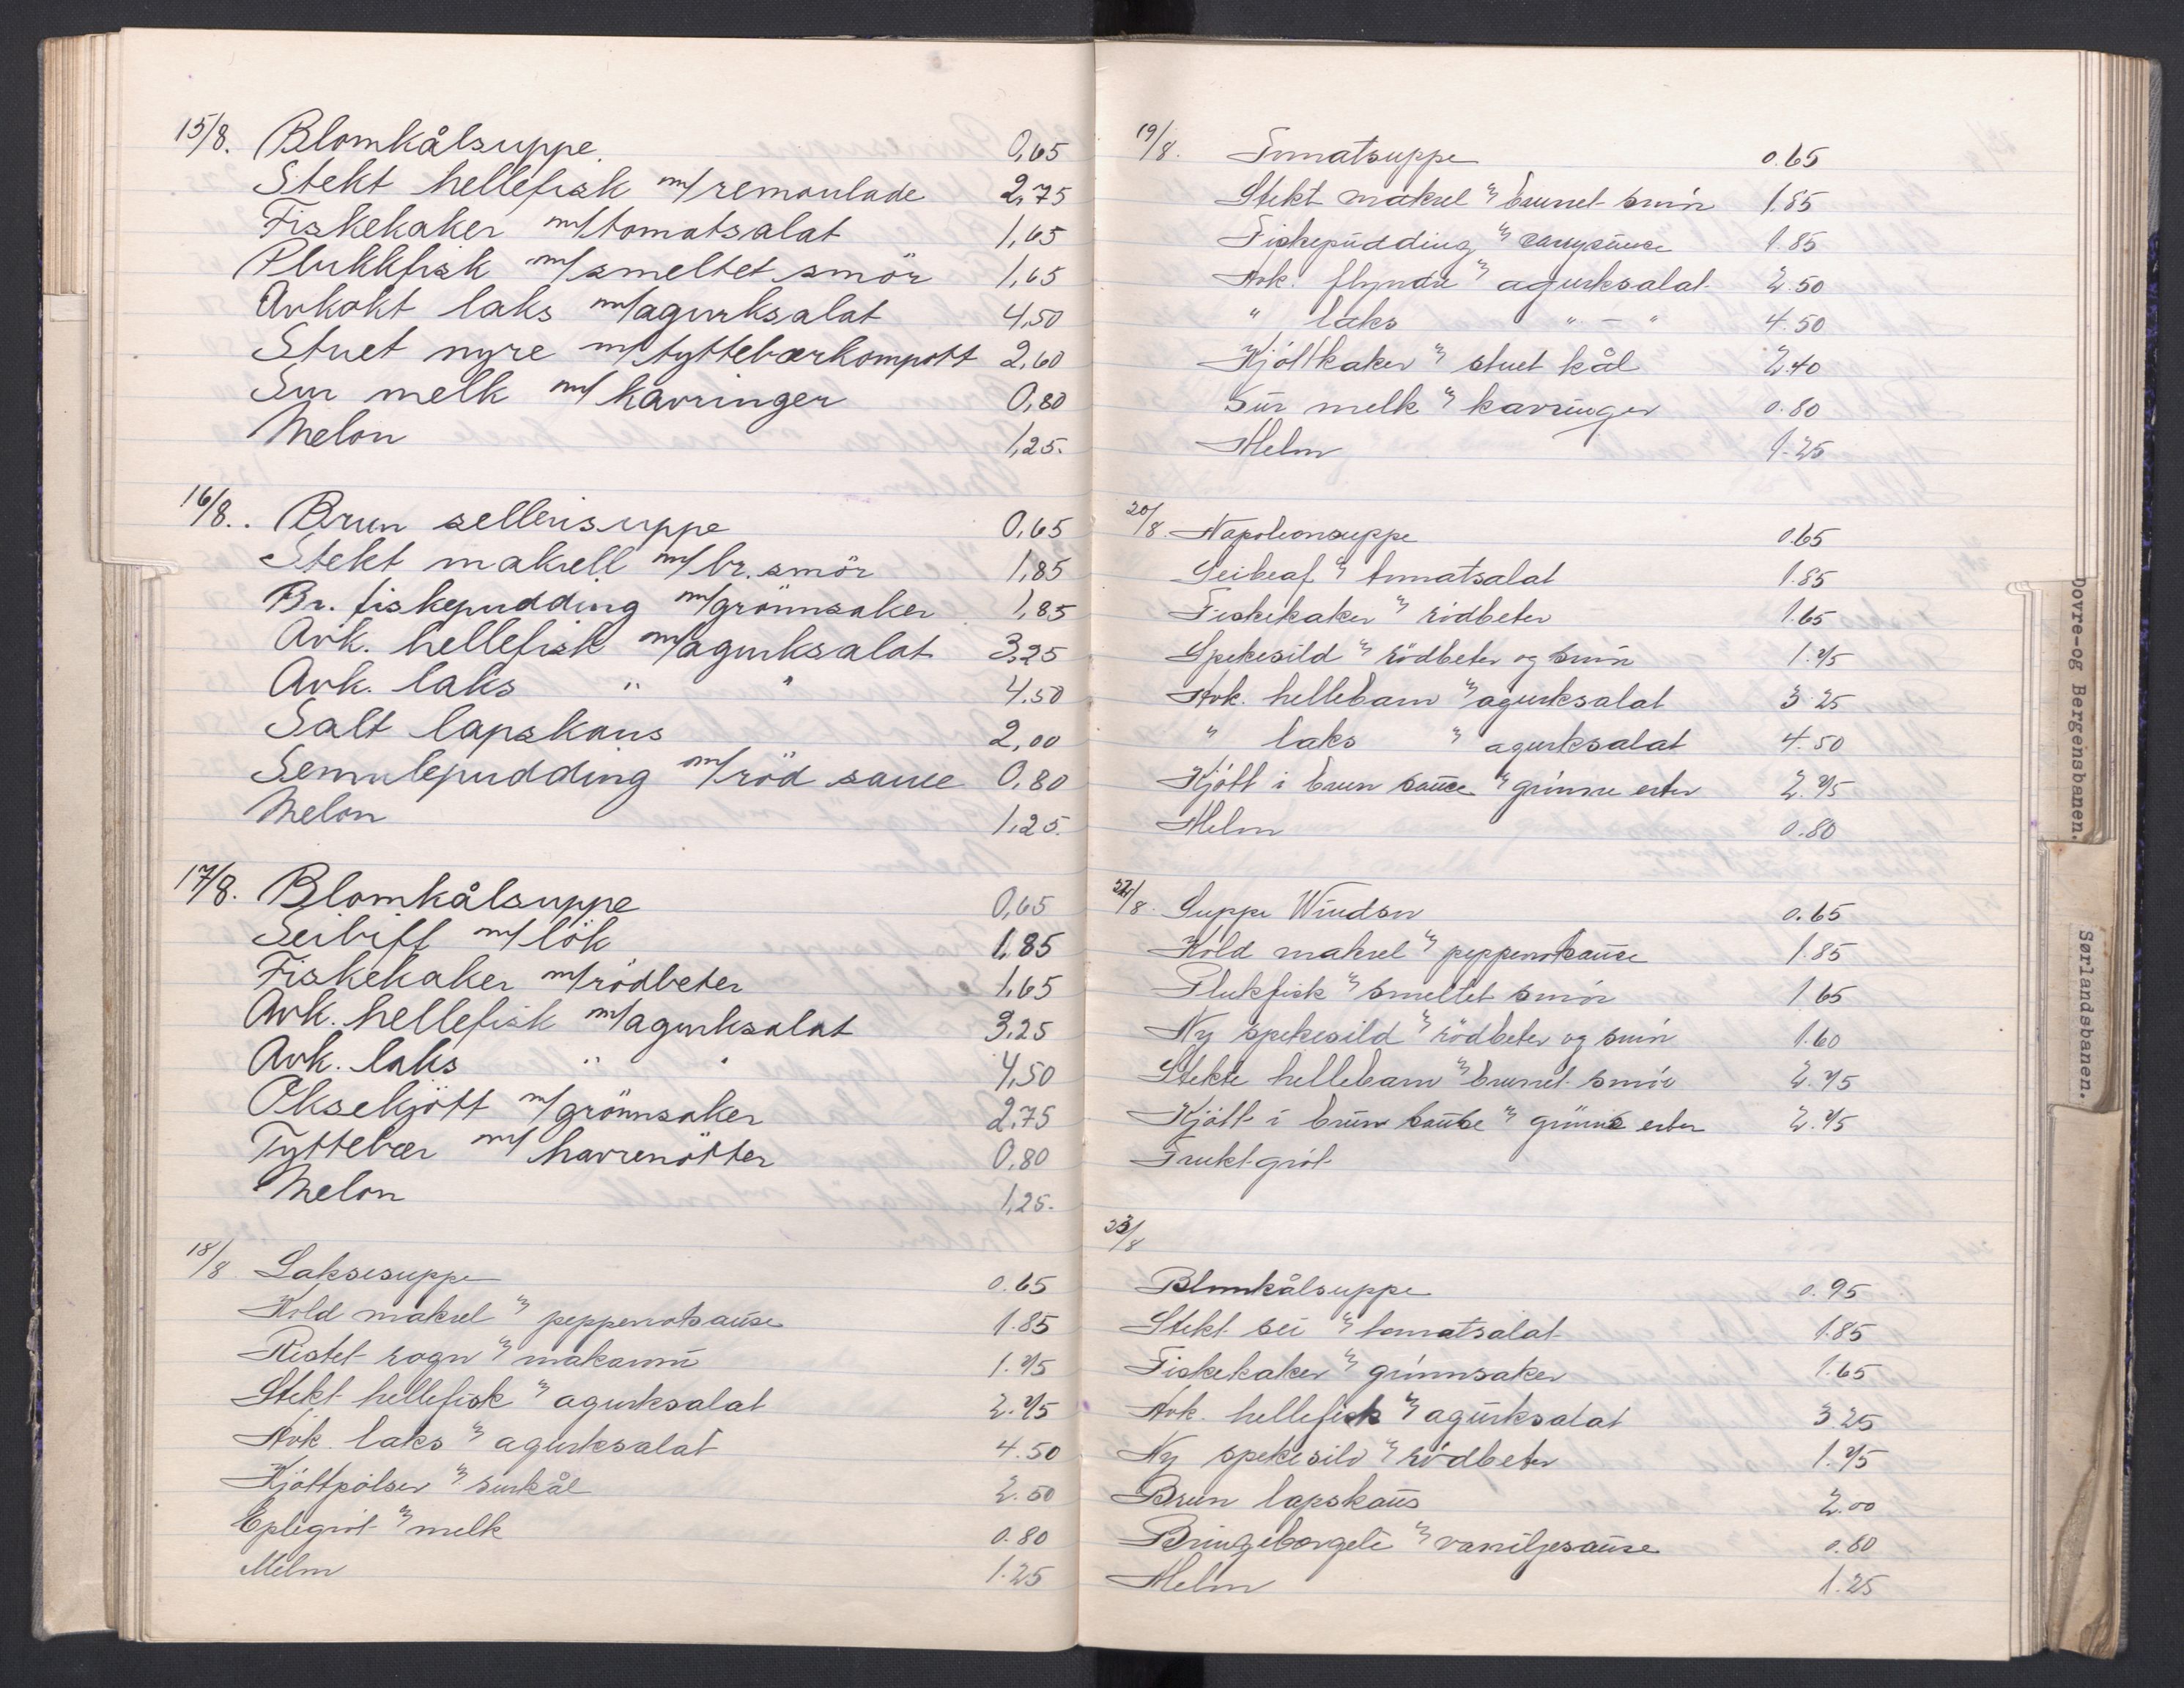 15/8. Blomkålsuppe. 0,65
Stekt hellefisk m/remoulade 2,75
Fiskekaker m/tomatsalat 1,65
Plukkfisk m/smeltet smör 1,65
Avkokt laks m/agurksalat 4,50
Stuet nyre m/tyttebærkompott 2,60
Sur melk m/ kavringer 0,80
Melon 1,25.
16/8.. Brun sellerisuppe 0,65
Stekt makrell m/br. smör 1,85
Br. fiskepudding m/grönnsaker 1,85
Avk. hellefisk m/agurksalat 3,25
Avk. laks " " 4,50
Salt lapskaus 2,00
Semulepudding m/röd sauce 0,80
Melon 1,25.
17/8. Blomkålsuppe 0,65
Seibiff m/ lök 1,85
Fiskekaker m/rödbeter 1,65
Avk. hellefisk m/agurksalat 3,25
Avk. laks " " 4,50
Oksekjött m/grönnsaker 2,75
Tyttebær m/ havrenötter 0,80
Melon 1,25.
18/8 Laksesuppe 0.65
Kold makrel m/ pepperrotsause 1.85
Ristet rogn m/ makaroni 1.75
Stekt hellefisk m/ agurksalat 2.75
Avk. laks m/ agurksalat 4.50
Kjöttpölser m/ surkål 2.50
Eplegröt m/ melk 0.80
Melon 1.25
19/8. Tomatsuppe 0.65
Stekt makrel m/ brunet smör 1.85
Fiskepudding m/ carrysause 1.85
Avk. flyndre m/ agurksalat 2.50
" laks " - " 4.50
Kjöttkaker m/ stuet kål 2.40
Sur melk m/ kavringer 0.80
Melon 1.25
20/8. Napoleonsuppe 0.65
Seibeaf m/ tomatsalat 1.85
Fiskekaker m/ rödbeter 1.65
Spekesild m/ rödbeter og smör 1.75
Avk. hellebarn m/ agurksalat 3.25
" laks m/ agurksalat 4.50
Kjött i brun sauce m/ grönne erter 2.75
Melon 0.80
22/8. Suppe Windsor 0.65
Kold makrel m/ pepperrotsause 1.85
Plukfisk m/ smeltet smör 1.65
Ny spekesild m/ rödbeter og smör 1.60
Stekte hellebarn m/ brunet smör 2.75
Kjött i brun sause m/ grönne erter 2.75
Fruktgröt
23/8
Blomkålsuppe 0.95
Stekt sei m/ tomatsalat 1.85
Fiskekaker m/ grönnsaker 1.65
Avk. hellefisk m/ agurksalat 3.25
Ny spekesild m/ rödbeter 1.75
Brun lapskaus 2.00
Bringebærgele m/ vaniljesause 0.80
Melon 1.25
Dovre-og Bergensbanen.
Sørlandsbanen.